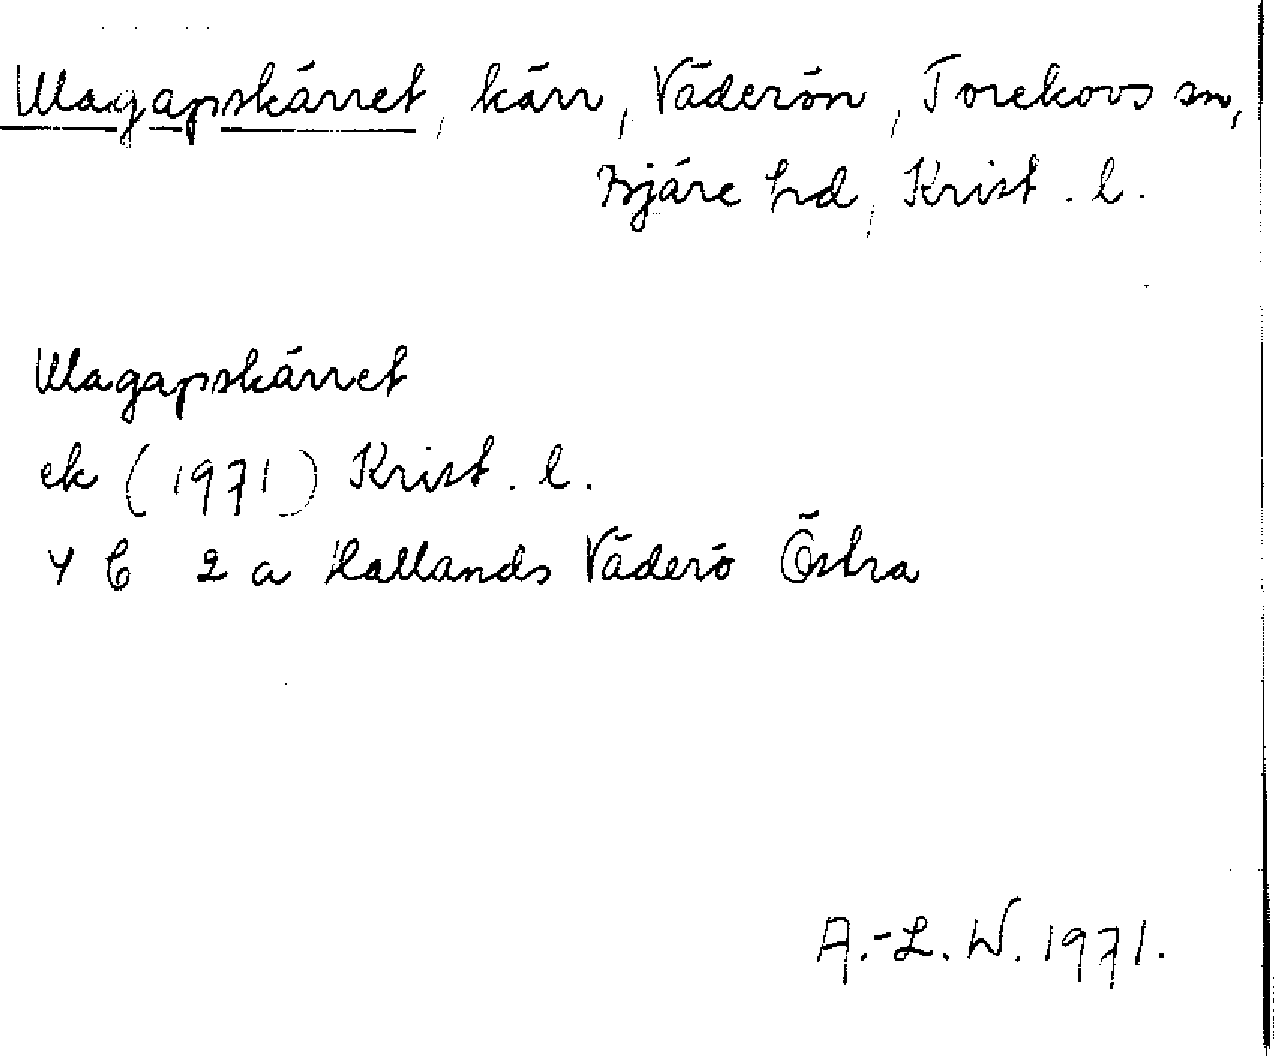 Ulagapskärret, kärr, Väderön, Torekovs sn,
Bjäre hd, Krist. l.
Ulagapskärret
ek (1971) Krist. l.
4 C 2 a Hallands Väderö Östra
A.-L. W. 1971.